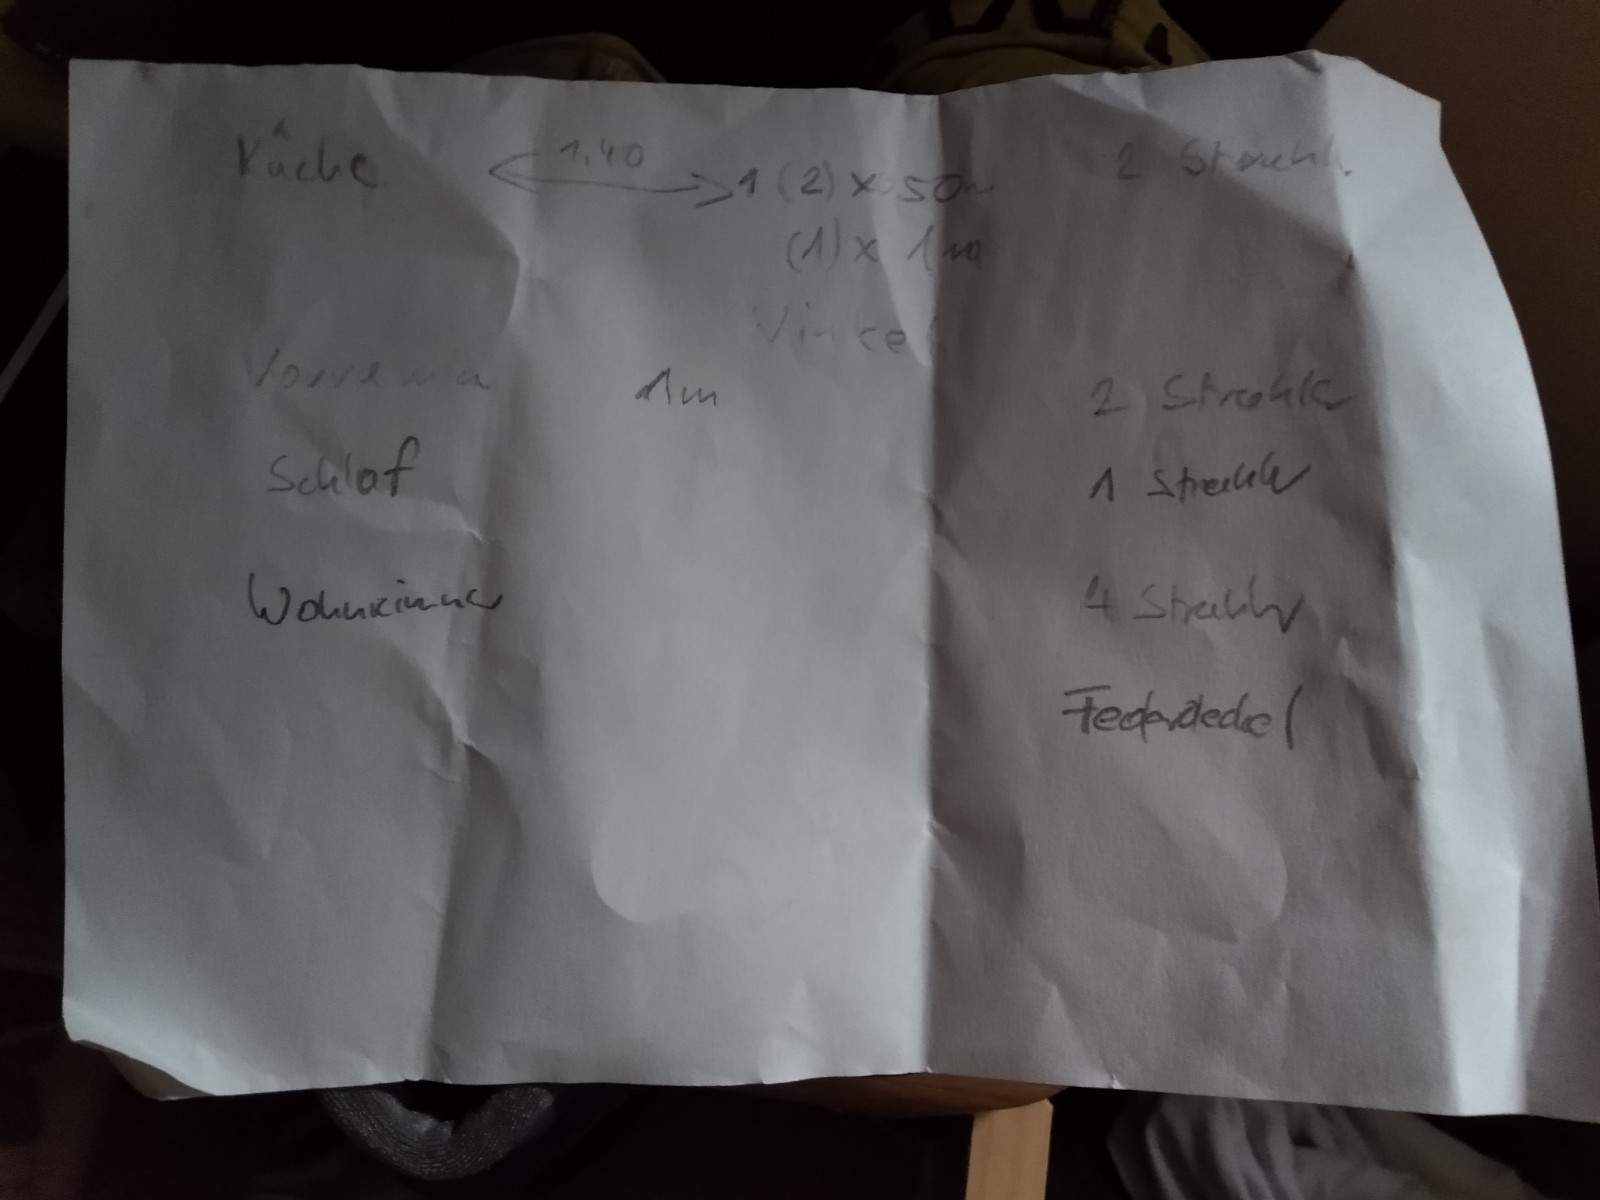 Küche 1,40 1 (2) x 50m 2 Strahl.
(1) x 1m
1m 2 Strahler
Schlaf 1 Strahler
Wohnzimmer 4 Strahler
Federdeckel